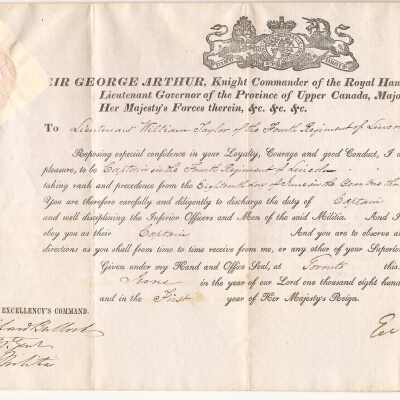 SIR GEORGE ARTHUR, Knight Commander of the Royal Han
Lieutenant Governor of the Province of Upper Canada, Majo
Her Majesty's Forces therein, &c. &c. &c.
To Lieutenant William Taylor of the Fourth Regiment of Lincoln
Reposing especial confidence in your Loyalty, Courage and good Conduct, I d
pleasure, to be Captain in the Fourth Regiment of Lincoln
taking rank and precedence from the Eighteenth day of June in the
You are therefore carefully and diligently to discharge the duty of Captain
and well disciplining the Inferior Officers and Men of the said Militia. And I
obey you as their Captain And you are to observe a
directions as you shall from time to time receive from me, or any other of your Superio
Given under my Hand and Office Seal, at Toronto this
June in the year of our Lord one thousand eight hund
and in the First year of Her Majesty's Reign.
EXCELLENCY'S COMMAND.
Richard Bullock
Adjt. Genl.
Militia